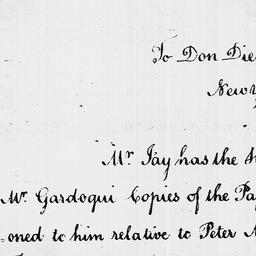 To Don Die
New
Mr. Jay has the
Mr. Gardoqui Copies of the Pa
oned to him relative to Peter